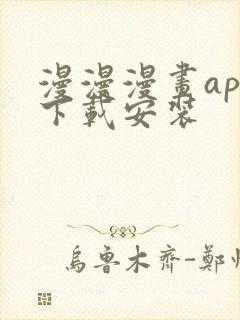 漫漫漫畫ap
下載安裝
烏魯木齊-鄭